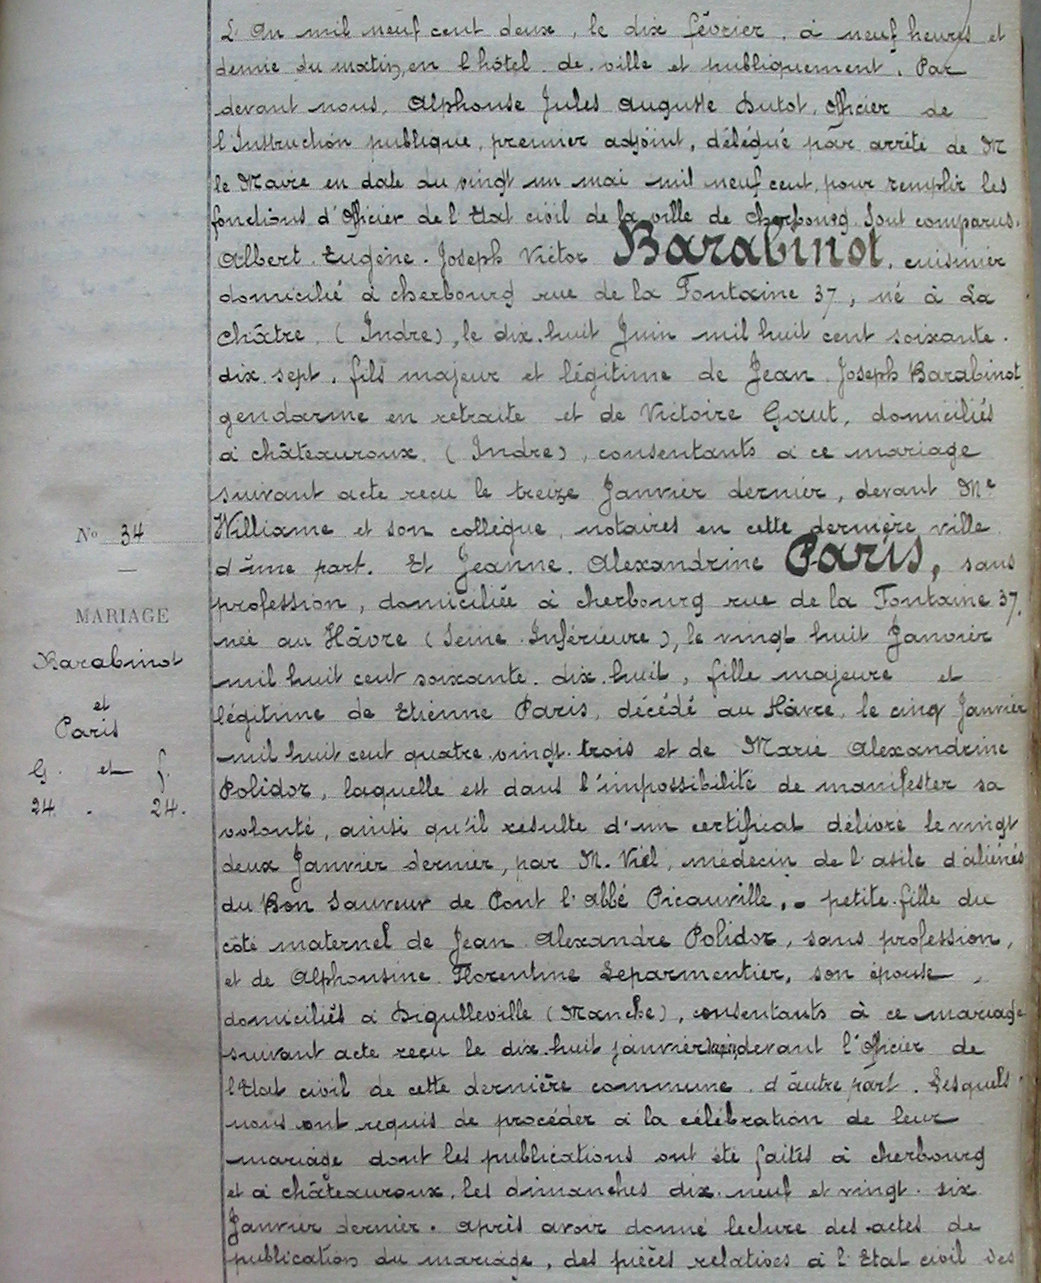 N° 34
MARIAGE
Barabinot
et
Paris
G. et f.
24. - 24.
L'An mil neuf cent deux, le dix février, à neuf heures et
demie du matin, en l'hôtel de ville et publiquement. Par
devant nous, Alphonse Jules Auguste Dutot, Officier de
l'Instruction publique, premier adjoint, délégué par arrêté de M
le Maire en date du vingt un mai mil neuf cent, pour remplir les
fonctions d'Officier de l'Etat civil de la ville de Cherbourg. Sont comparus.
Albert. Eugène. Joseph Victor Barabinot, cuisinier
domicilié à Cherbourg rue de la Fontaine 37, né à La
Châtre. (Indre), le dix.huit Juin mil huit cent soixante.
dix.sept, fils majeur et légitime de Jean Joseph Barabinot,
gendarme en retraite et de Victoire Gaut, domiciliés
à Châteauroux. (Indre), consentants à ce mariage
suivant acte reçu le treize Janvier dernier, devant Me
Williame et son collègue, notaires en cette dernière ville
d'une part. Et Jeanne. Alexandrine Paris, sans
profession, domiciliée à Cherbourg rue de la Fontaine 37.
née au Hâvre (Seine Inférieure), le vingt huit Janvier
mil huit cent soixante. dix.huit, fille majeure et
légitime de Etienne Paris, décédé au Hâvre, le cinq Janvier
mil huit cent quatre.vingt.trois et de Marie Alexandrine
Polidor, laquelle est dans l'impossibilité de manifester sa
volonté, ainsi qu'il résulte d'un certificat délivré le vingt
deux Janvier dernier, par M. Viel, médecin de l'asile d'aliénés
du Bon Sauveur de Pont l'Abbé Picauville,. petite.fille du
côté maternel de Jean Alexandre Polidor, sans profession,
et de Alphonsine Florentine Leparmentier, son épouse,
domiciliés à Digulleville (Manche), consentants à ce mariage
suivant acte reçu le dix.huit janvier devant l'Officier de
l'Etat civil de cette dernière commune. d'autre part. Lesquels
nous ont requis de procéder à la célébration de leur
mariage dont les publications ont été faites à Cherbourg
et à Châteauroux, les dimanches dix.neuf et vingt.six
Janvier dernier. Après avoir donné lecture des actes de
publication du mariage, des pièces relatives à l'Etat civil des